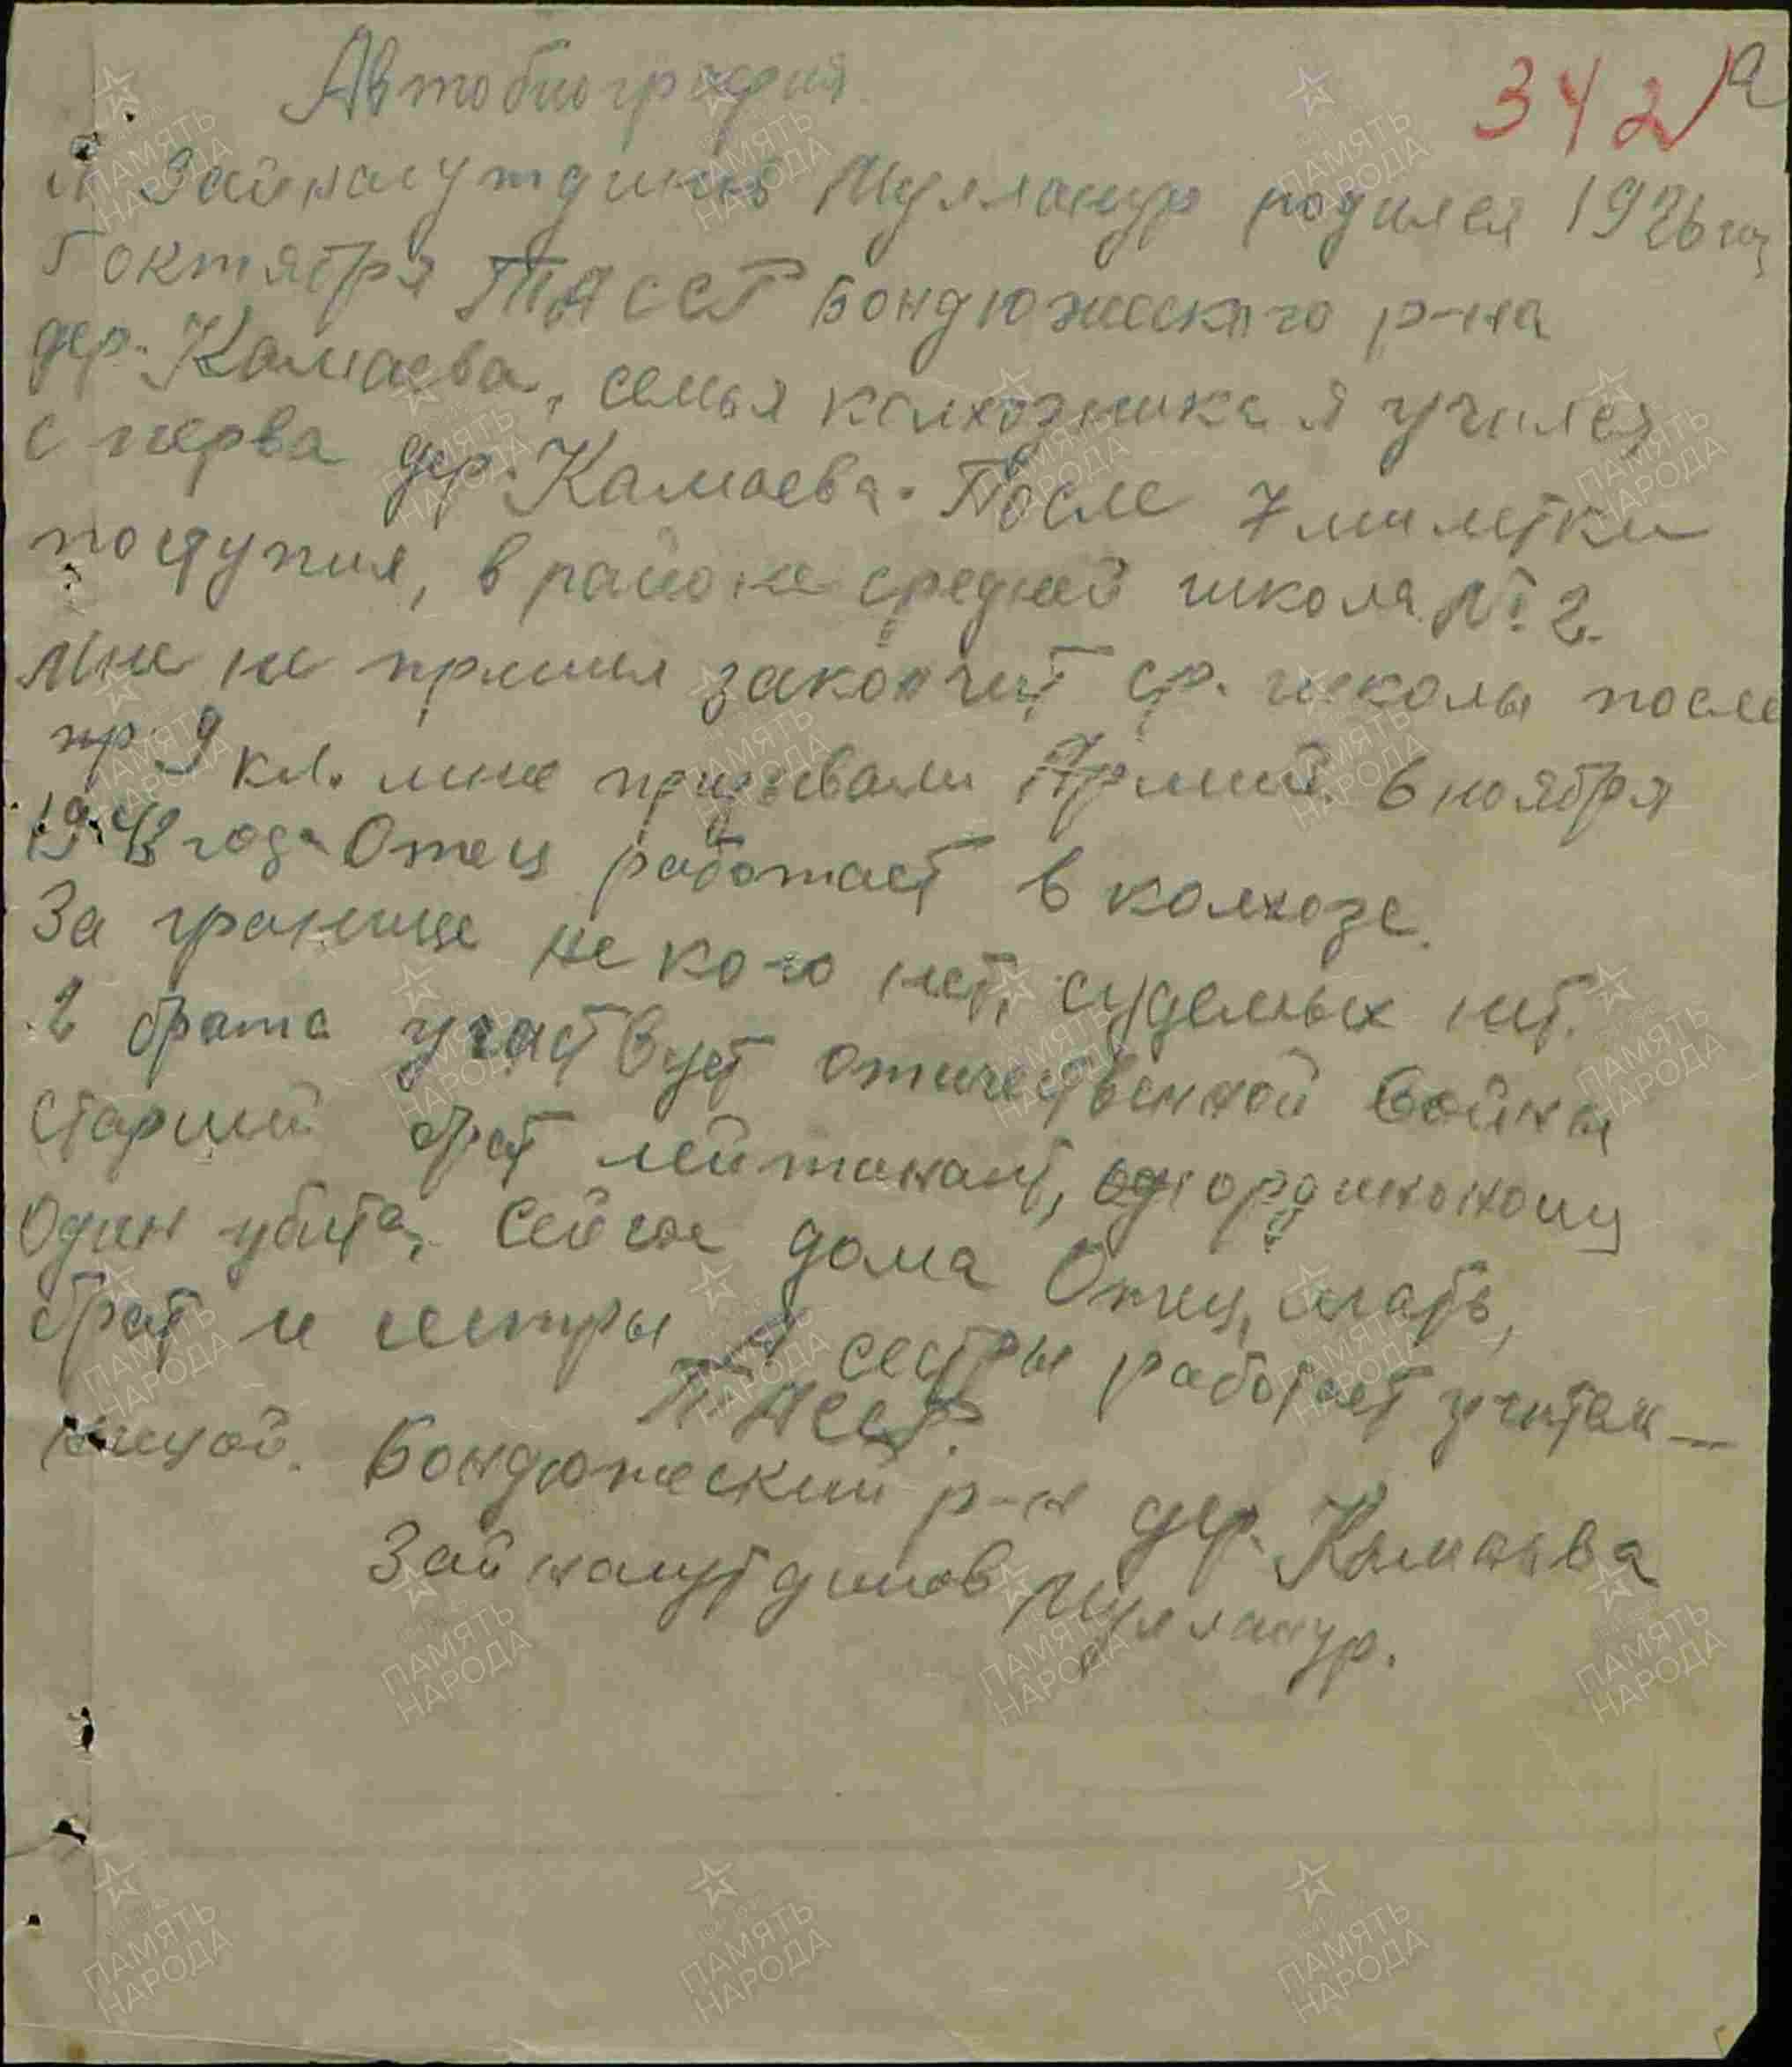 Автобиография
342 а
я Зайналутдинов Мулланур родился 1926 год
5 октября ТАССР Бондюжеского р-на
дер. Камаева, семья колхозника я учился
с перва дер. Камаева. После 7милетки
поступил, в районе средней школа № 2.
Мне не пришел закончит ср. школы после
пр 9 кл. мне призывали Армий 6 ноября
1943 года Отец работает в колхозе.
За границе не кого нет, судемых нет.
2 брата участвует отичественной войны
старший брат лейтенант,
Один убита, Сейчас дома Отец, мать,
брат и сестры 1 сестры работает учитель-
ницой. ТАССР.
Бондюжеский р-н дер. Камаева
Зайналутдинов Мулланур.